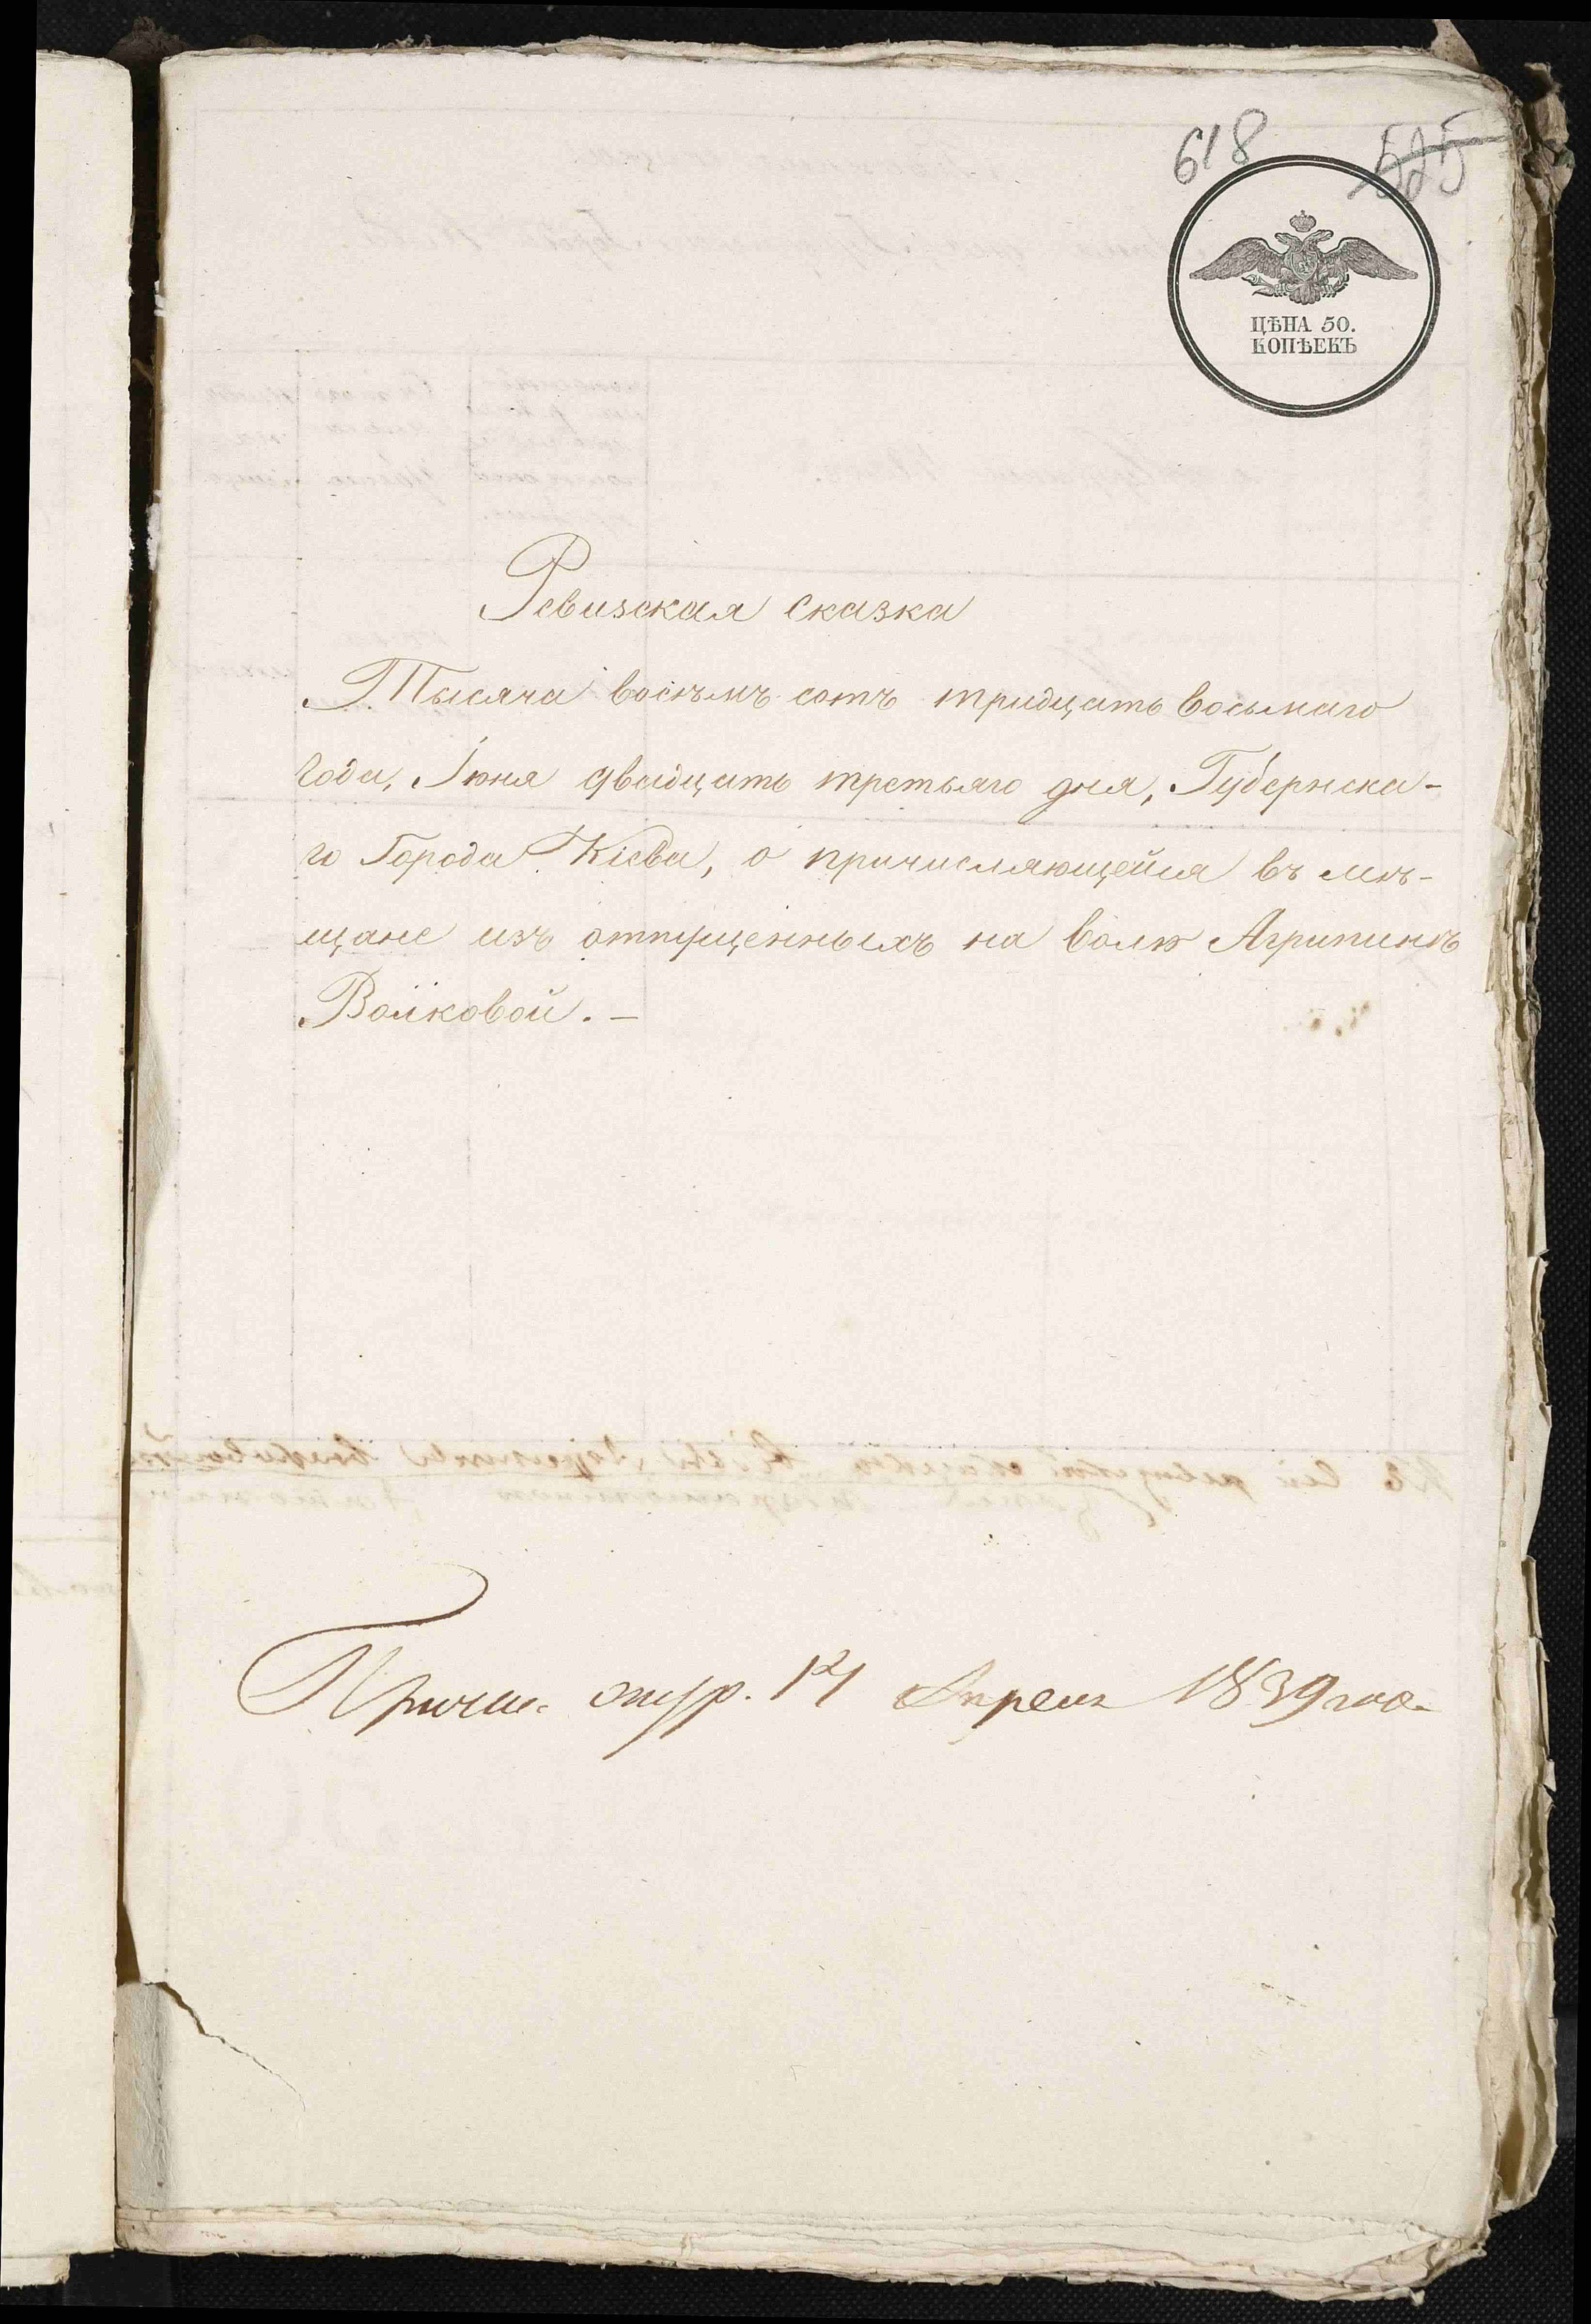 618 525
ЦѢНА 50.
КОПѢЕКЪ
Ревизская сказка
Тысяча восѣмъ сотъ тридцать восьмаго
года, Іюня двадцать третьяго дня, Губернска-
го Города Кіева, о причисляющейся въ мѣ-
щане изъ отпущенныхъ на волю Агрипинѣ
Войковой. —
Апреля 1839 года